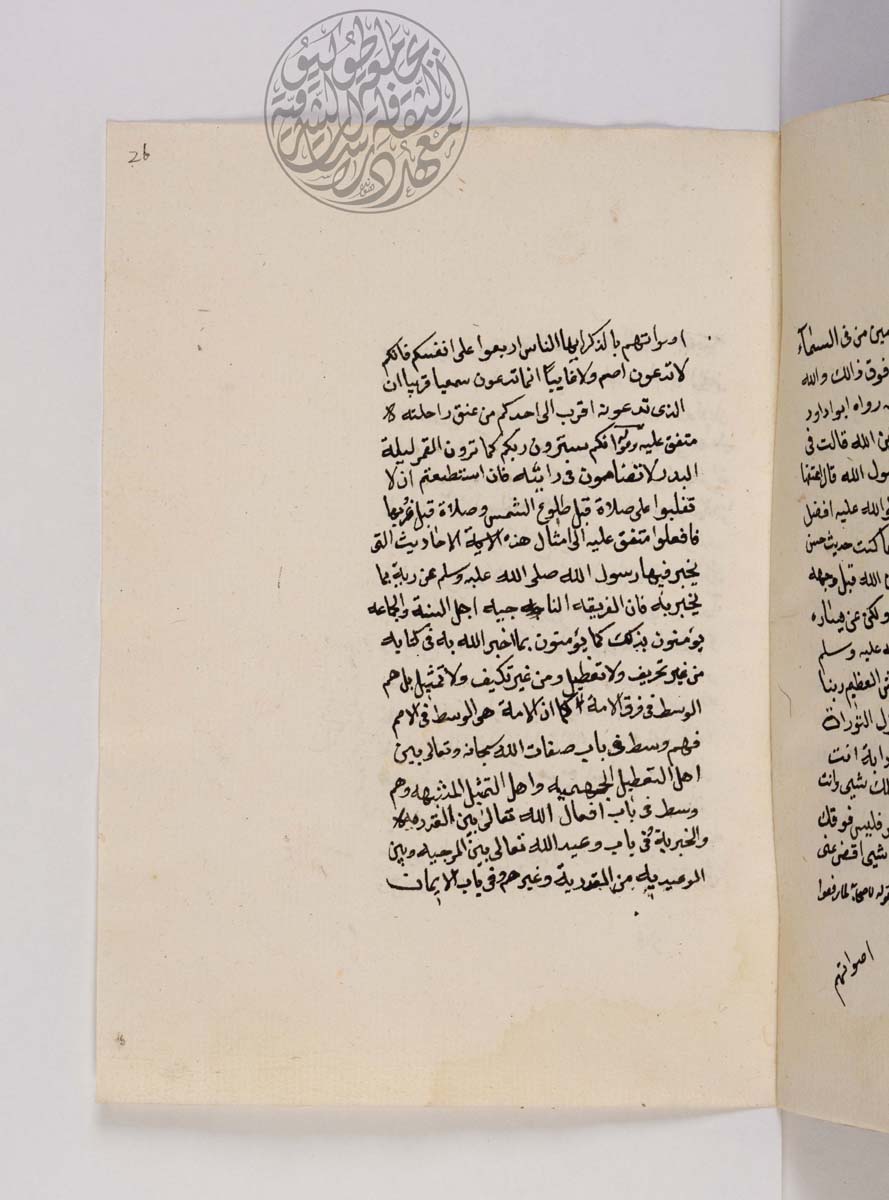 26
اصواتهم بالذكر ايها الناس اربعوا على انفسكم فانكم
لا تدعون اصم ولا غايباً انما تدعون سمعيا قريبا ان
الذى تدعونه اقرب الى احدكم من عنق راحلته
متفق عليه وقوله انكم سترون ربكم كما ترون القمر ليلة
البدر لا تضاهون فى رايته فان استطعتم ان لا
تغلبوا على صلاة قبل طلوع الشمس وصلاة قبل غروبها
فافعلوا متفق عليه الى امثال هذه الاحاديث التى
يخبر فيها رسول الله صلى الله عليه وسلم عن ربه بما
يخبر به فان الفريقه الناجيه اهل السنة والجماعه
يؤمنون بذلك كما يؤمنون بما اخبر الله به فى كتابه
من غير تحريف ولا تعطيل ومن غير تكيف ولا تمثيل بل هم
الوسط فى فرق الامة كما ان الامة هى الوسط فى الامم
فهم وسط فى باب صفات الله سبحانه وتعالى بين
اهل التعطيل الجهميه واهل التمثيل المشبهه وهم
وسط فى باب افعال الله تعالى بين القدريه
والجبرية فى باب وعيد الله تعالى بين المرجيه وبين
الوعيديه من القدرية وغيرهم وفى باب الايمان
من فى السماء
فوق ذالك والله
رواه ابو داود
الله قالت فى
رسول الله قال اعتقها
الله عليه افضل
كنت حديث حسن
الله قبل وجهه
ولكن عن يساره
عليه وسلم
العظيم ربنا
التوراة
دابة انت
شيى وانت
فليس فوقك
شيى اقض عنى
لما رفعوا
اصواتهم